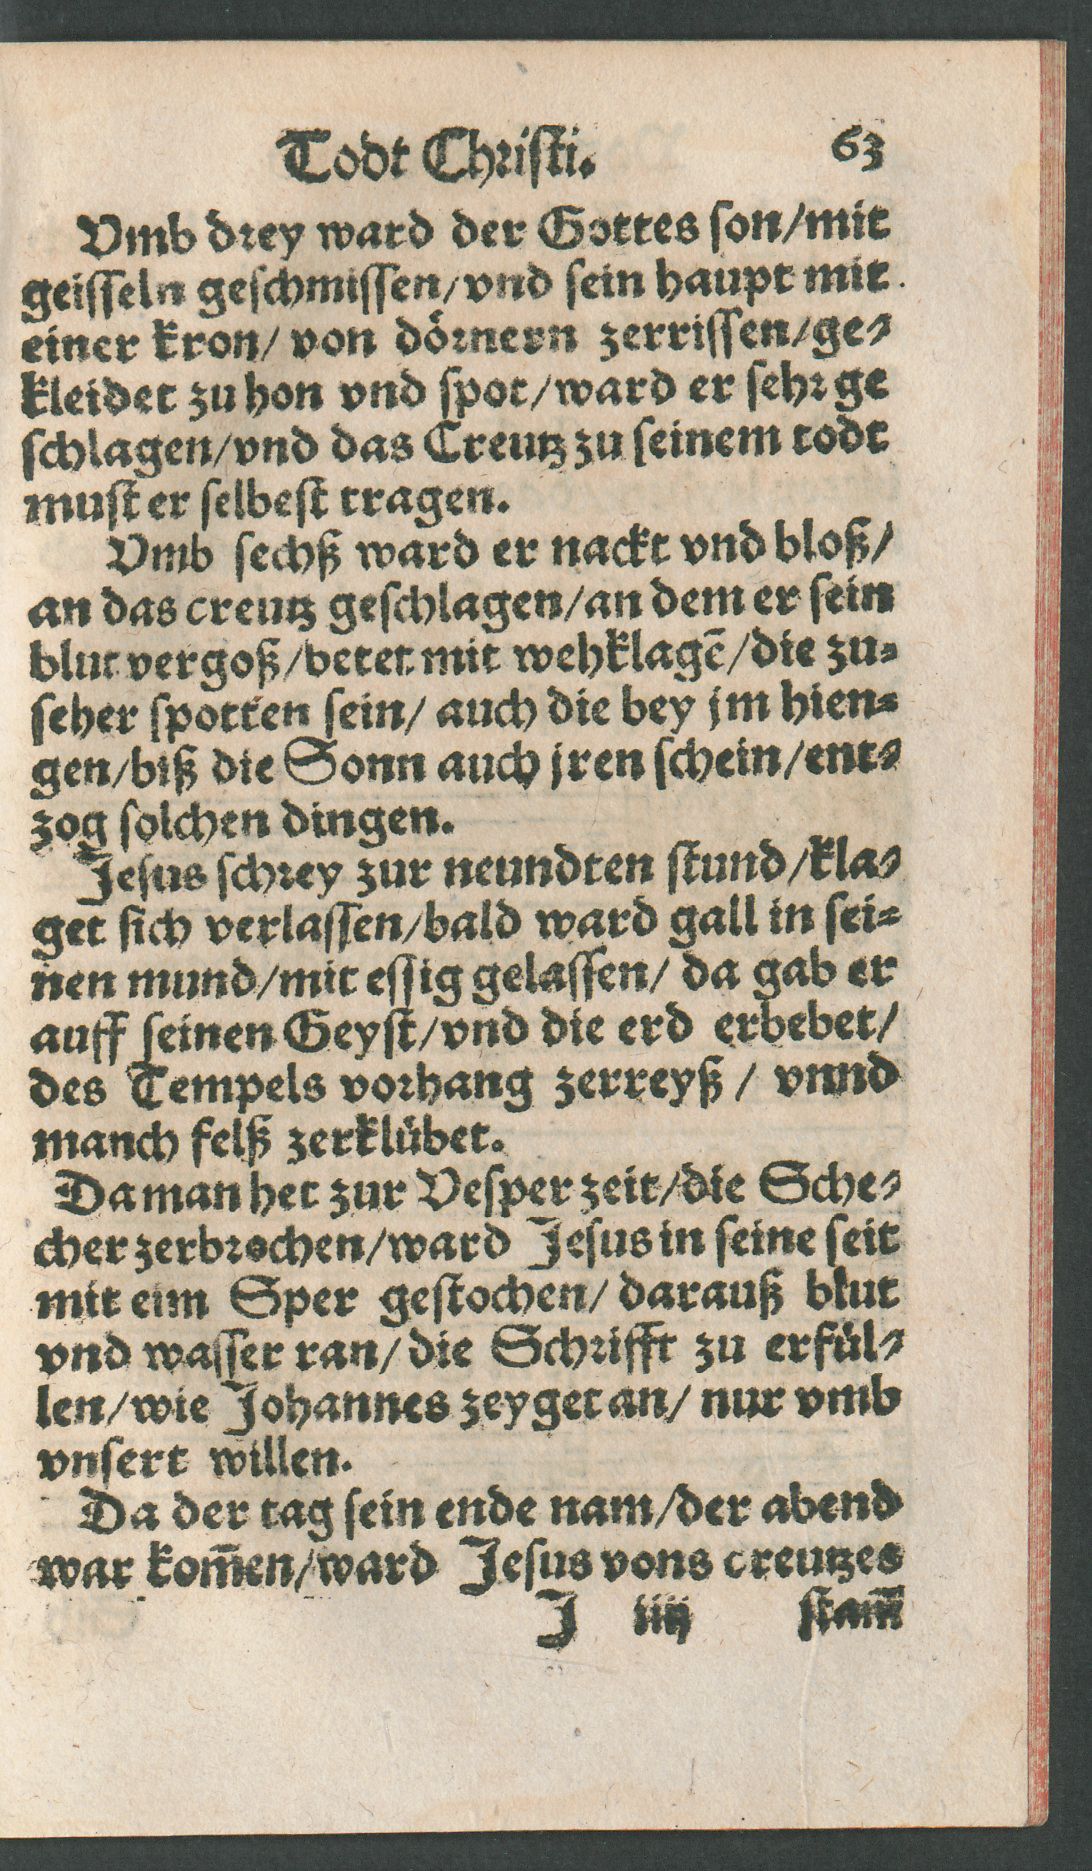 Todt Christi. 63
Vmb drey ward der Gottes son/mit
geisseln geschmissen/vnd sein haupt mit
einer kron/ von dörnern zerrissen/ge⸗
kleidet zu hon vnd spot/ward er sehr ge
schlagen/vnd das Creutz zu seinem todt
must er selbest tragen.
Vmb sechß ward er nackt vnd bloß/
an das creutz geschlagen/an dem er sein
blut vergoß/betet mit wehklagē/die zu⸗
seher spotten sein/ auch die bey jm hien⸗
gen/biß die Sonn auch jren schein/ent⸗
zog solchen dingen.
Jesus schrey zur neundten stund/kla⸗
get sich verlassen/bald ward gall in sei⸗
nen mund/mit essig gelassen/ da gab er
auff seinen Geyst/vnd die erd erbebet/
des Tempels vorhang zerreyß / vnnd
manch felß zerklübet.
Da man het zur Vesper zeit/die Sche⸗
cher zerbrochen/ward Jesus in seine seit
mit eim Sper gestochen/ darauß blut
vnd wasser ran/die Schrifft zu erfül⸗
len/wie Johannes zeyget an/ nur vmb
vnsert willen.
Da der tag sein ende nam/der abend
war kom̄en/ward Jesus vons creutzes
J iiij stam̄